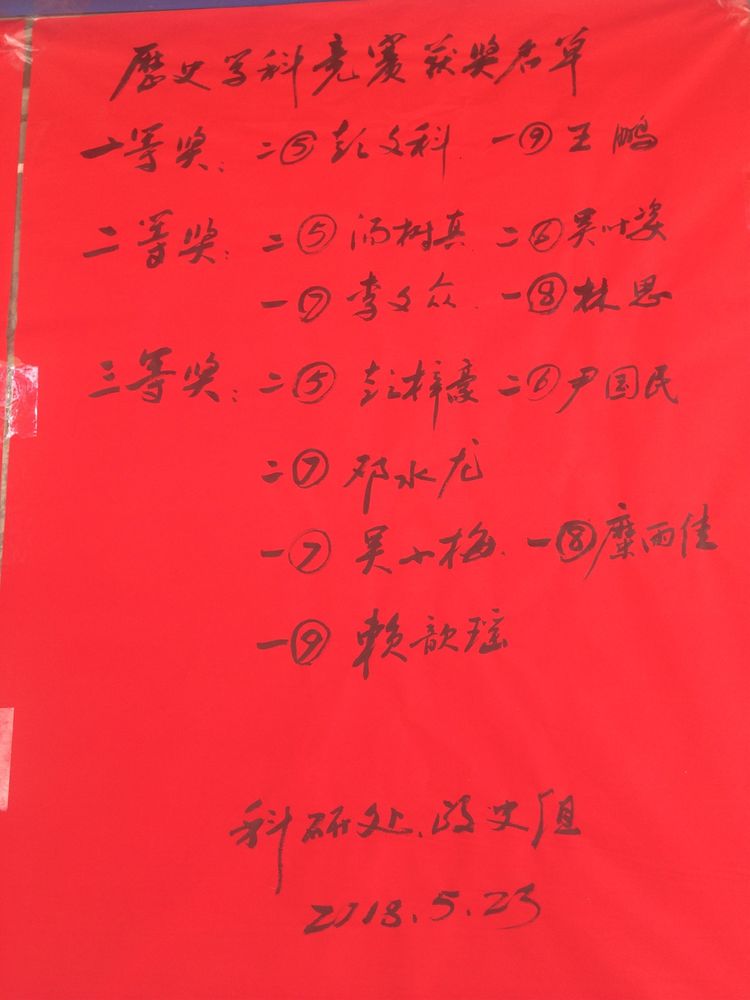 歷史学科竞赛获奖名单
一等奖：二⑤彭文科 一⑨王鹏
二等奖：二⑤汤树真 二⑥吴叶姿
一⑦李文众 一⑧林思
三等奖：二⑤彭梓豪 二⑥尹国民
二⑦邓水龙
一⑦吴小梅 一⑧糜雨佳
一⑨赖歆瑶
科研处、政史组
2018.5.23